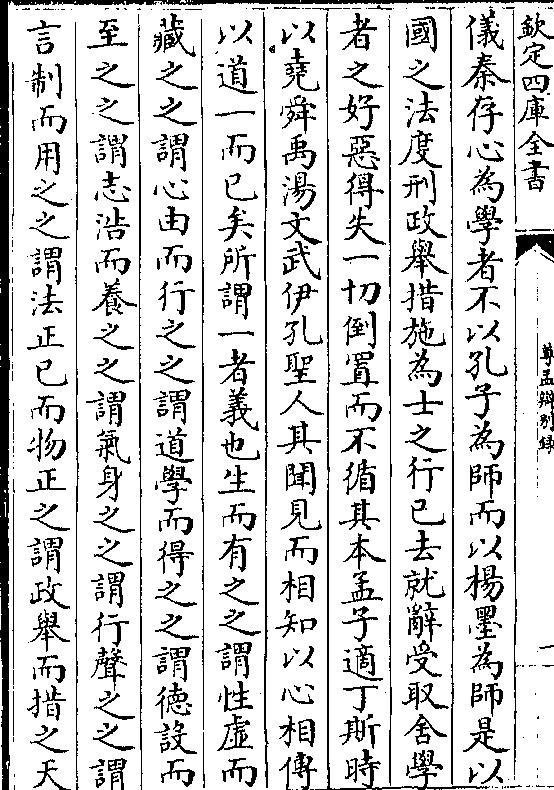 欽定四庫全書
尊孟辯別錄
一
儀秦存心為學者不以孔子為師而以楊墨為師是以
國之法度刑政舉措施為士之行已去就辭受取舍學
者之好惡得失一切倒置而不循其本孟子適丁斯時
以堯舜禹湯文武伊孔聖人其聞見而相知以心相傳
以道一而已矣所謂一者義也生而有之之謂性虛而
藏之之謂心由而行之之謂道學而得之之謂德設而
至之之謂志浩而養之之謂氣身之之謂行聲之之謂
言制而用之之謂法正已而物正之謂政舉而措之天